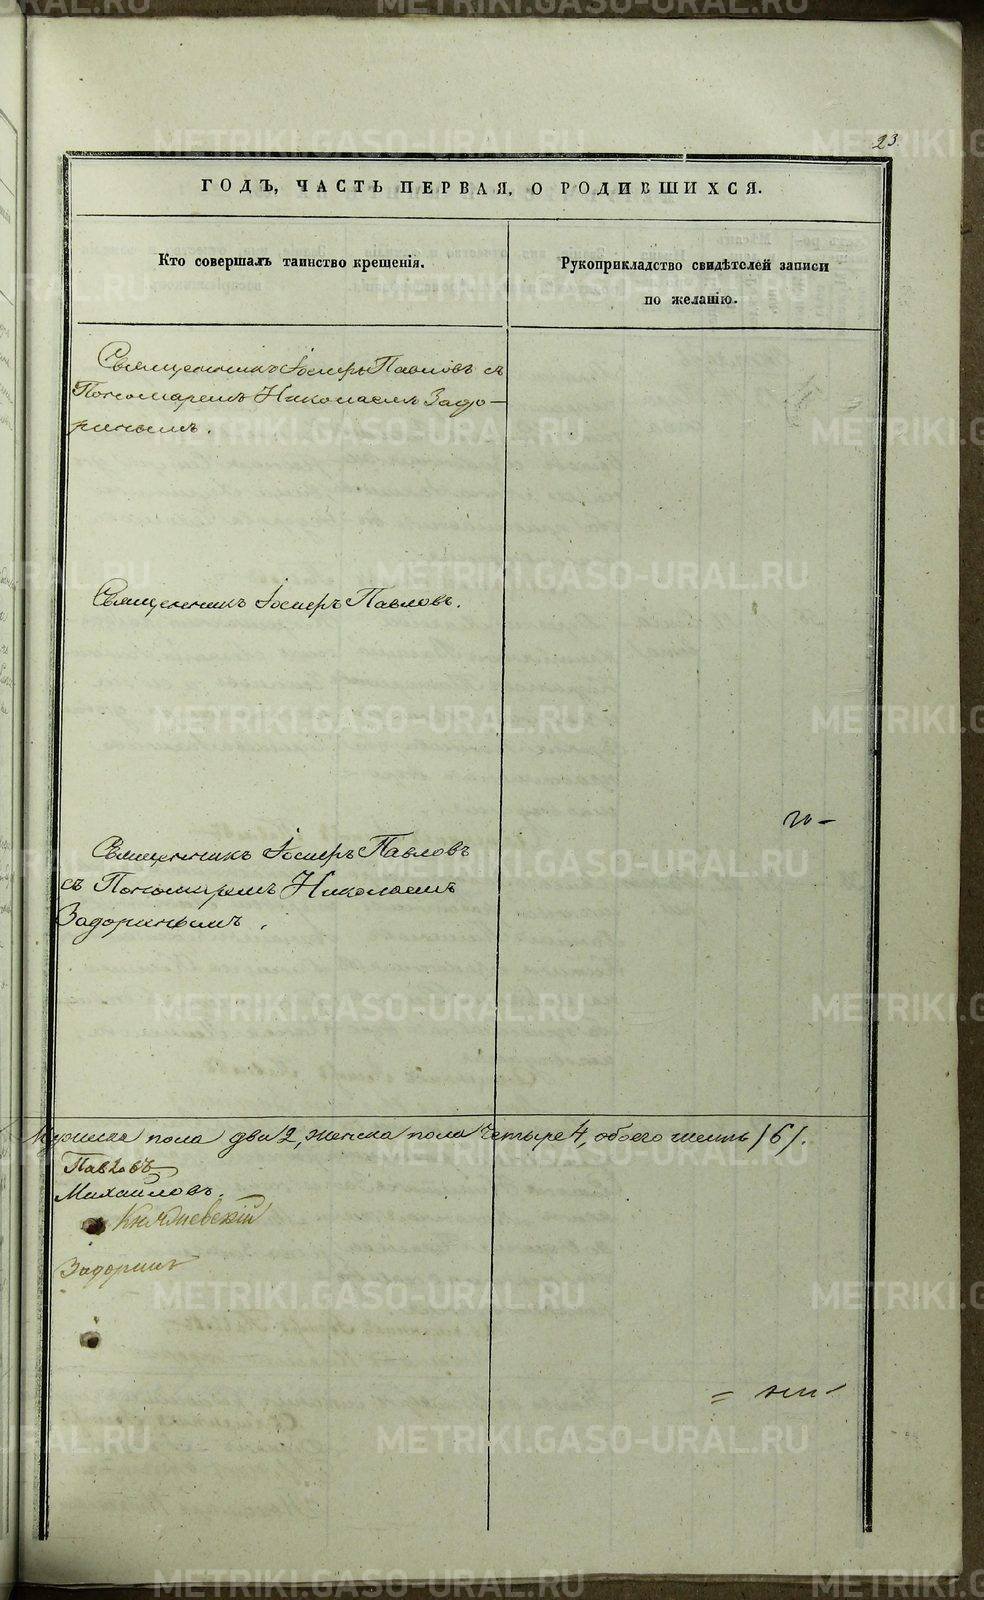 23.
ГОДЪ, ЧАСТЬ ПЕРВАЯ, О РОДИВШИХСЯ.
Кто совершалъ таинство крещенія.
Рукоприкладство свидѣтелей записи
по желанію.
Священникъ Іосифъ Павловъ съ
Пономаремъ Николаемъ Задо-
ринымъ.
Священникъ Іосифъ Павловъ.
Священникъ Іосифъ Павловъ
съ Пономаремъ Николаемъ
Задоринымъ.
Мужеска пола два 2, женска пола четыре 4, обоего шесть /6/.
Павловъ
Михайловъ.
Задоринъ
METRIKI.GASO-URAL.RU